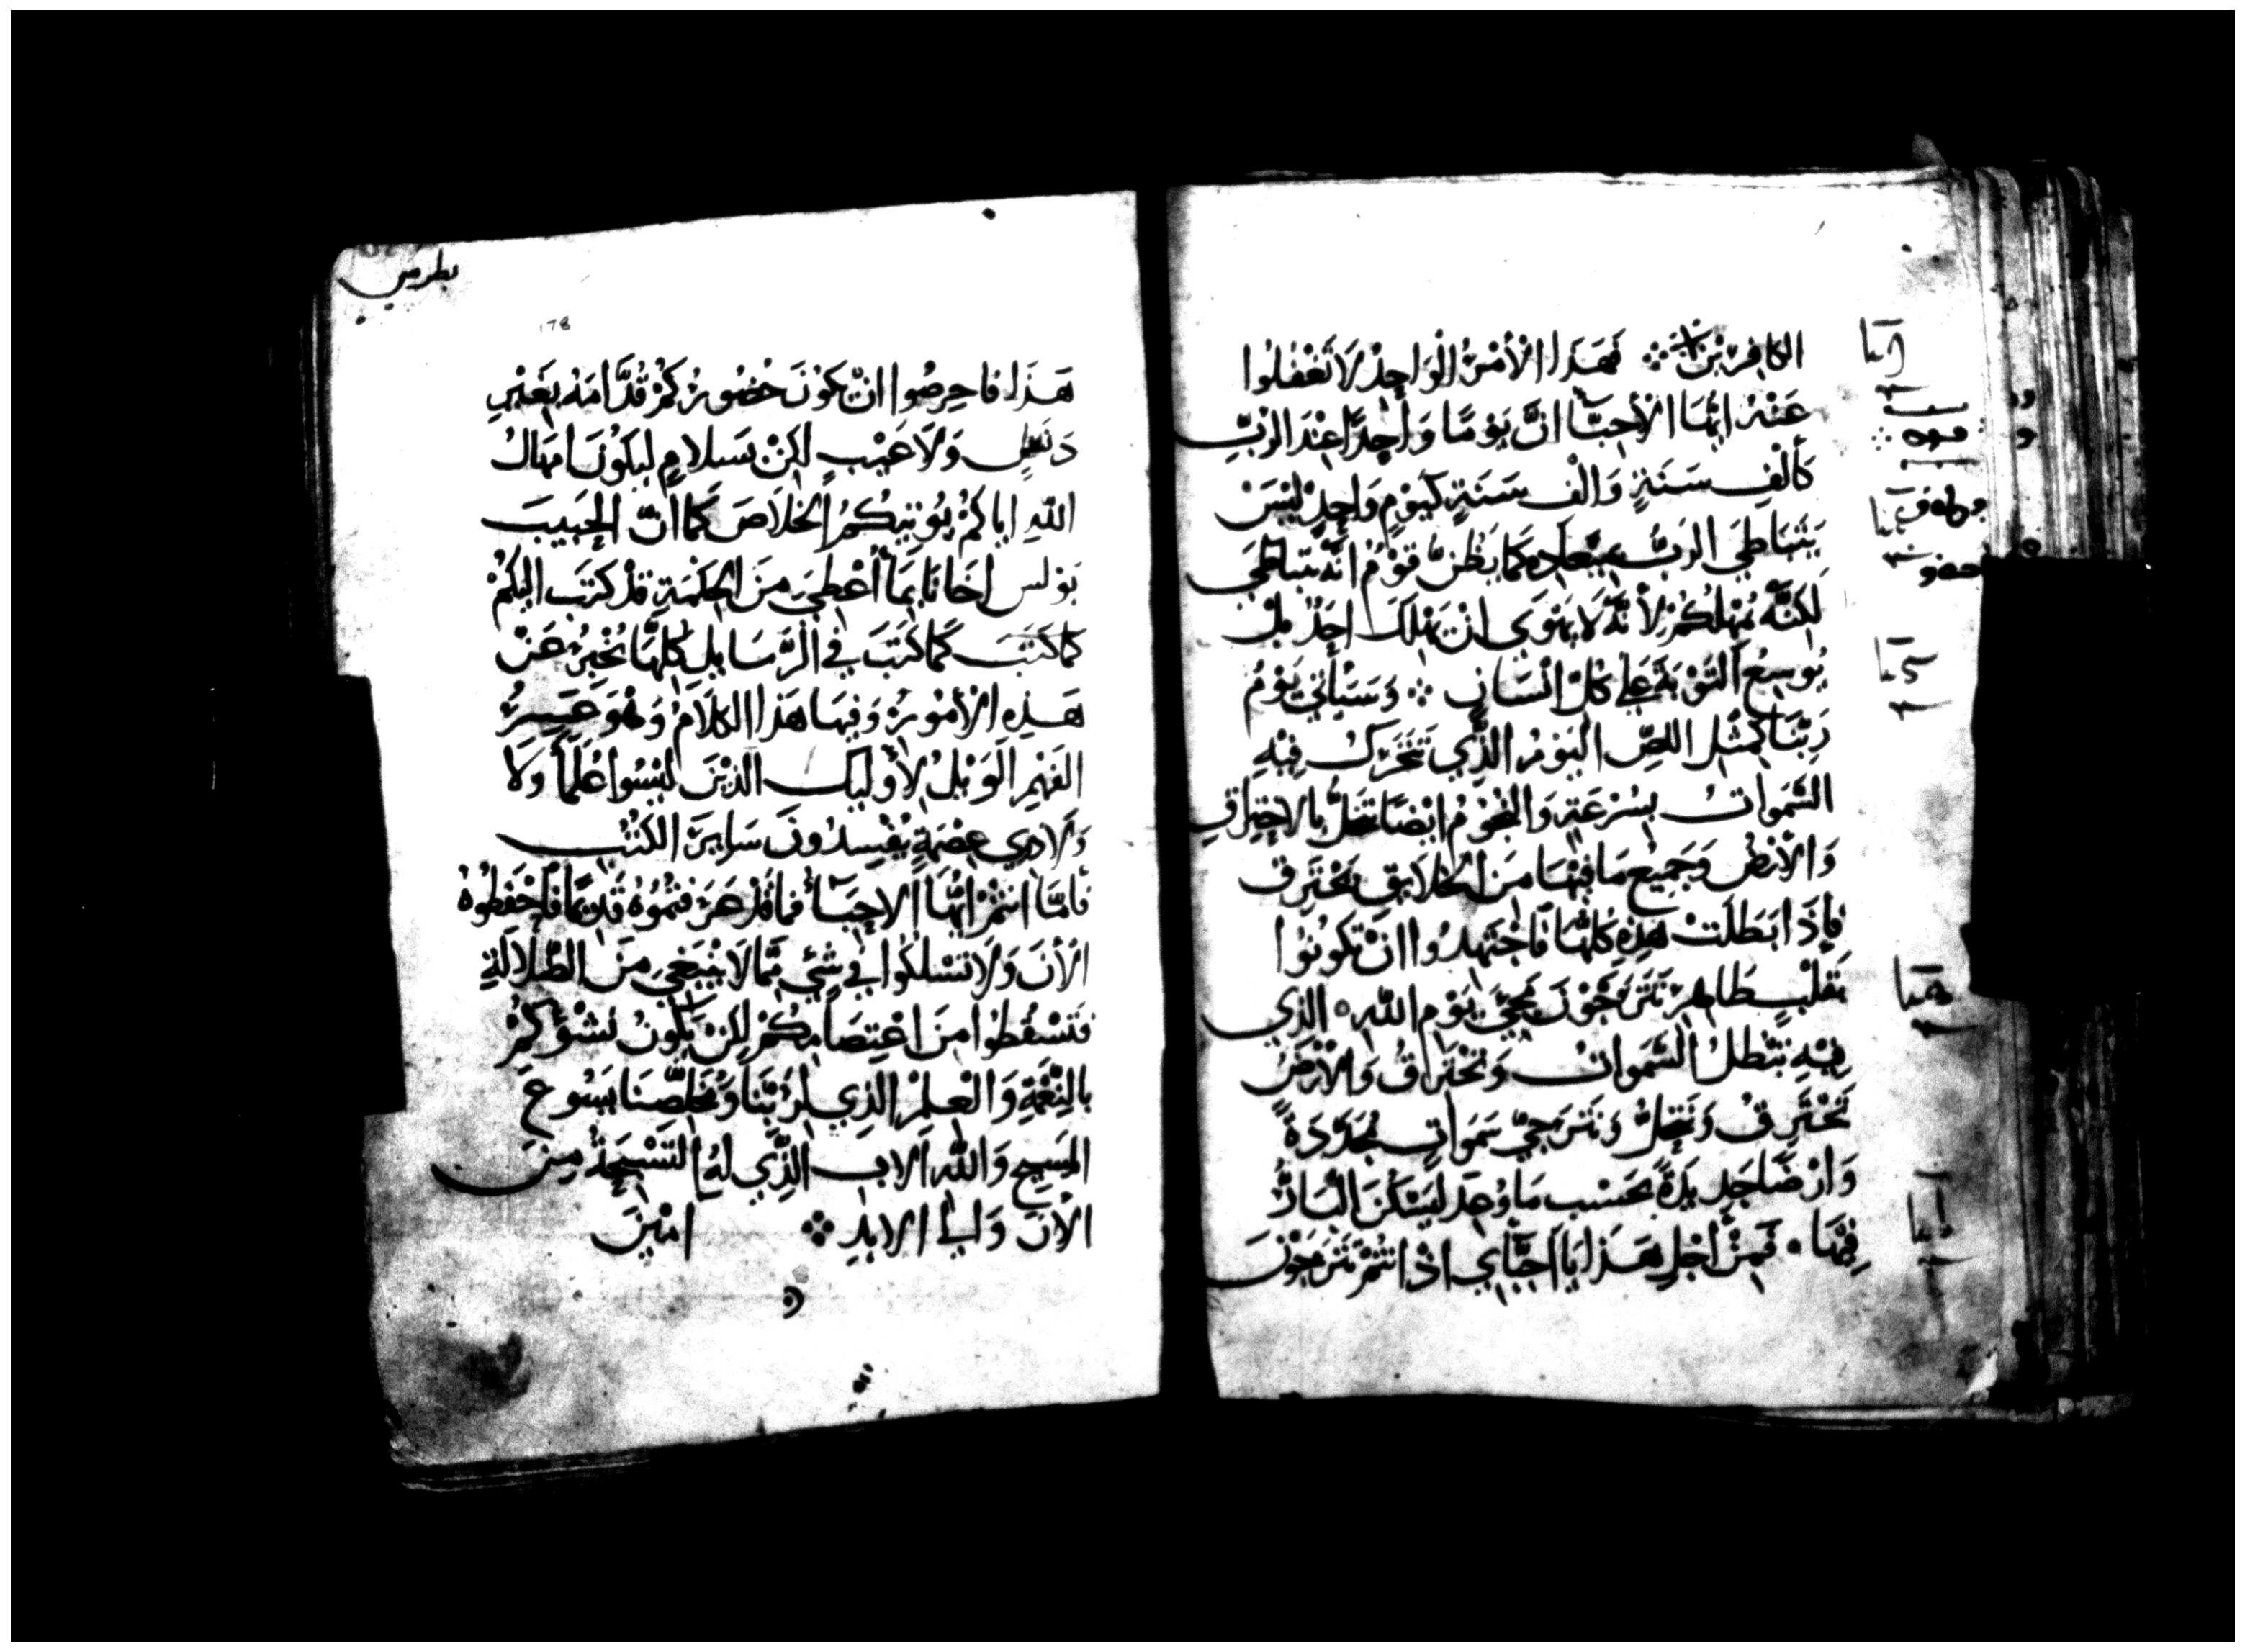 الكافرين ※ فَهَذا الأمْرُ الْوَاحِدْ لاَ تَغْفُلُوا
عَنْهُ ايُّهَا الأحِبَّآ انَّ يَوْمًا وَاحِدًا عِنْدَ الرَّبِّ
كَألْفِ سَنَةٍ وَالْف سَنَةٍ كَيَوْمٍ وَاحِدٍ لَيْسَ
يَتَبَاطِي الرَبُّ بميعَادِه كَمَا يَظُنُّ قَوْمُ انَّه يتباطَي
لَكِنَّه يُمْهِلُكُمْ لأنَّهُ لَا يَهْوَي انْ يَهْلِكَ احَدٌ بل
يُوسِعُ التَوْبَةَ عَلي كُلّ انْسَانٍ ⁘ وَسَيَأتي يَوْمُ
رَبّنَا كَمِثْلِ اللصِّ اليَوْمُ الذَّي تَتَحَرَكُ فِيْهِ
السَّمَواتُ بِسُرْعَةٍ وَالنُجُوْمُ ايْضًا تَنحَلُّ بالاحتِرَاقِ
وَالأرْضُ وَجَمِيْع مَا فِيْهَا مِنَ الخَلايقِ تَحْتَرِق
فإذَا بَطَلَتْ هَذِهِ كُلهَّا فَاجْتَهِدُوا انْ تَكُونُوا
بقَلْبٍ طَاهِرٍ تَتَرَجَّوْنَ مَجِيَّ يَوْمِ الله ⁘ الذي
فِيْهِ تَبْطلُ السَّمَواتُ وَتَحْتَرِقُ وَالأرْضُ
تَحْتَرِقُ وَتَنحَلُّ وَنَتَرجيّ سَمَواتٍ مُجَدَّدَةً
وَارْضًا جَدِيدَةً بحَسْبِ مَا وُعِدَ ليَسْكَنَ البَارُّ
فِيْهَا ٠ فَمِنْ أجْلِ هَذَا يَا احِبَّآي اذْ انتُمْ تَتَرَجَوْنَ
بطرس
178
هَذَا فاحرِصُوا انْ يَكونَ حُضُورُكُمْ قُدَّامَهُ بِغَيْرِ
دَنَسٍ وَلاَ عَيْبٍ لكِنْ بسَلامٍ ليَكُونَ امهَالُ
اللهِ اياكُمْ يُوتيكُمُ الخَلاَصَ كَمَا انَّ الحَبيبَ
بَوْلس اخَانَا بمَا أُعْطيَ مِنَ الحكْمَةِ قَدْ كتَب اليكُمْ
كما كَتَبَ كَمَا كَتَبَ في الرَّسَايلِ كلهَّا يُخْبِرُ عَنْ
هَذِهِ الأمُورُ وَفيهَا هَذا الكلاَمُ وَهُوَ عَسِرُ
الفَهْمِ الوَيْلُ لأوليك الذيْنَ ليْسُوا عُلَمآ وَلا
وَلا ذوي عِصْمَةٍ يُفْسِدُونَ سَايرَ الكُتُبِ
فأمَّا انتُمْ ايُّهَا الاحِبَّآ فمَا قَدْ عَرَفتُمُوُهُ قَديمًا فأحْفَظُوهُ
الأنَ وَلاَ تَسْلكُوا في شَيْءٍ ممَّا لا يَنْبَغي مِنَ الضَّلالَةِ
فَتَسْقُطُوا مِنَ اعْتِصَامِكُمْ لكِنْ يَكُونُ نشْوُكُمْ
بالنِعْمَةِ وَالْعِلمِ الذي لرَبّنَا وَمُخَلِّصَنَا يَسُوع
المسِيحِ وَالله الاب الذَّي لهُ التَسْبِحَةُ مِنَ
الأنَ وَالي الابدِ ⁘ امِيْنَ